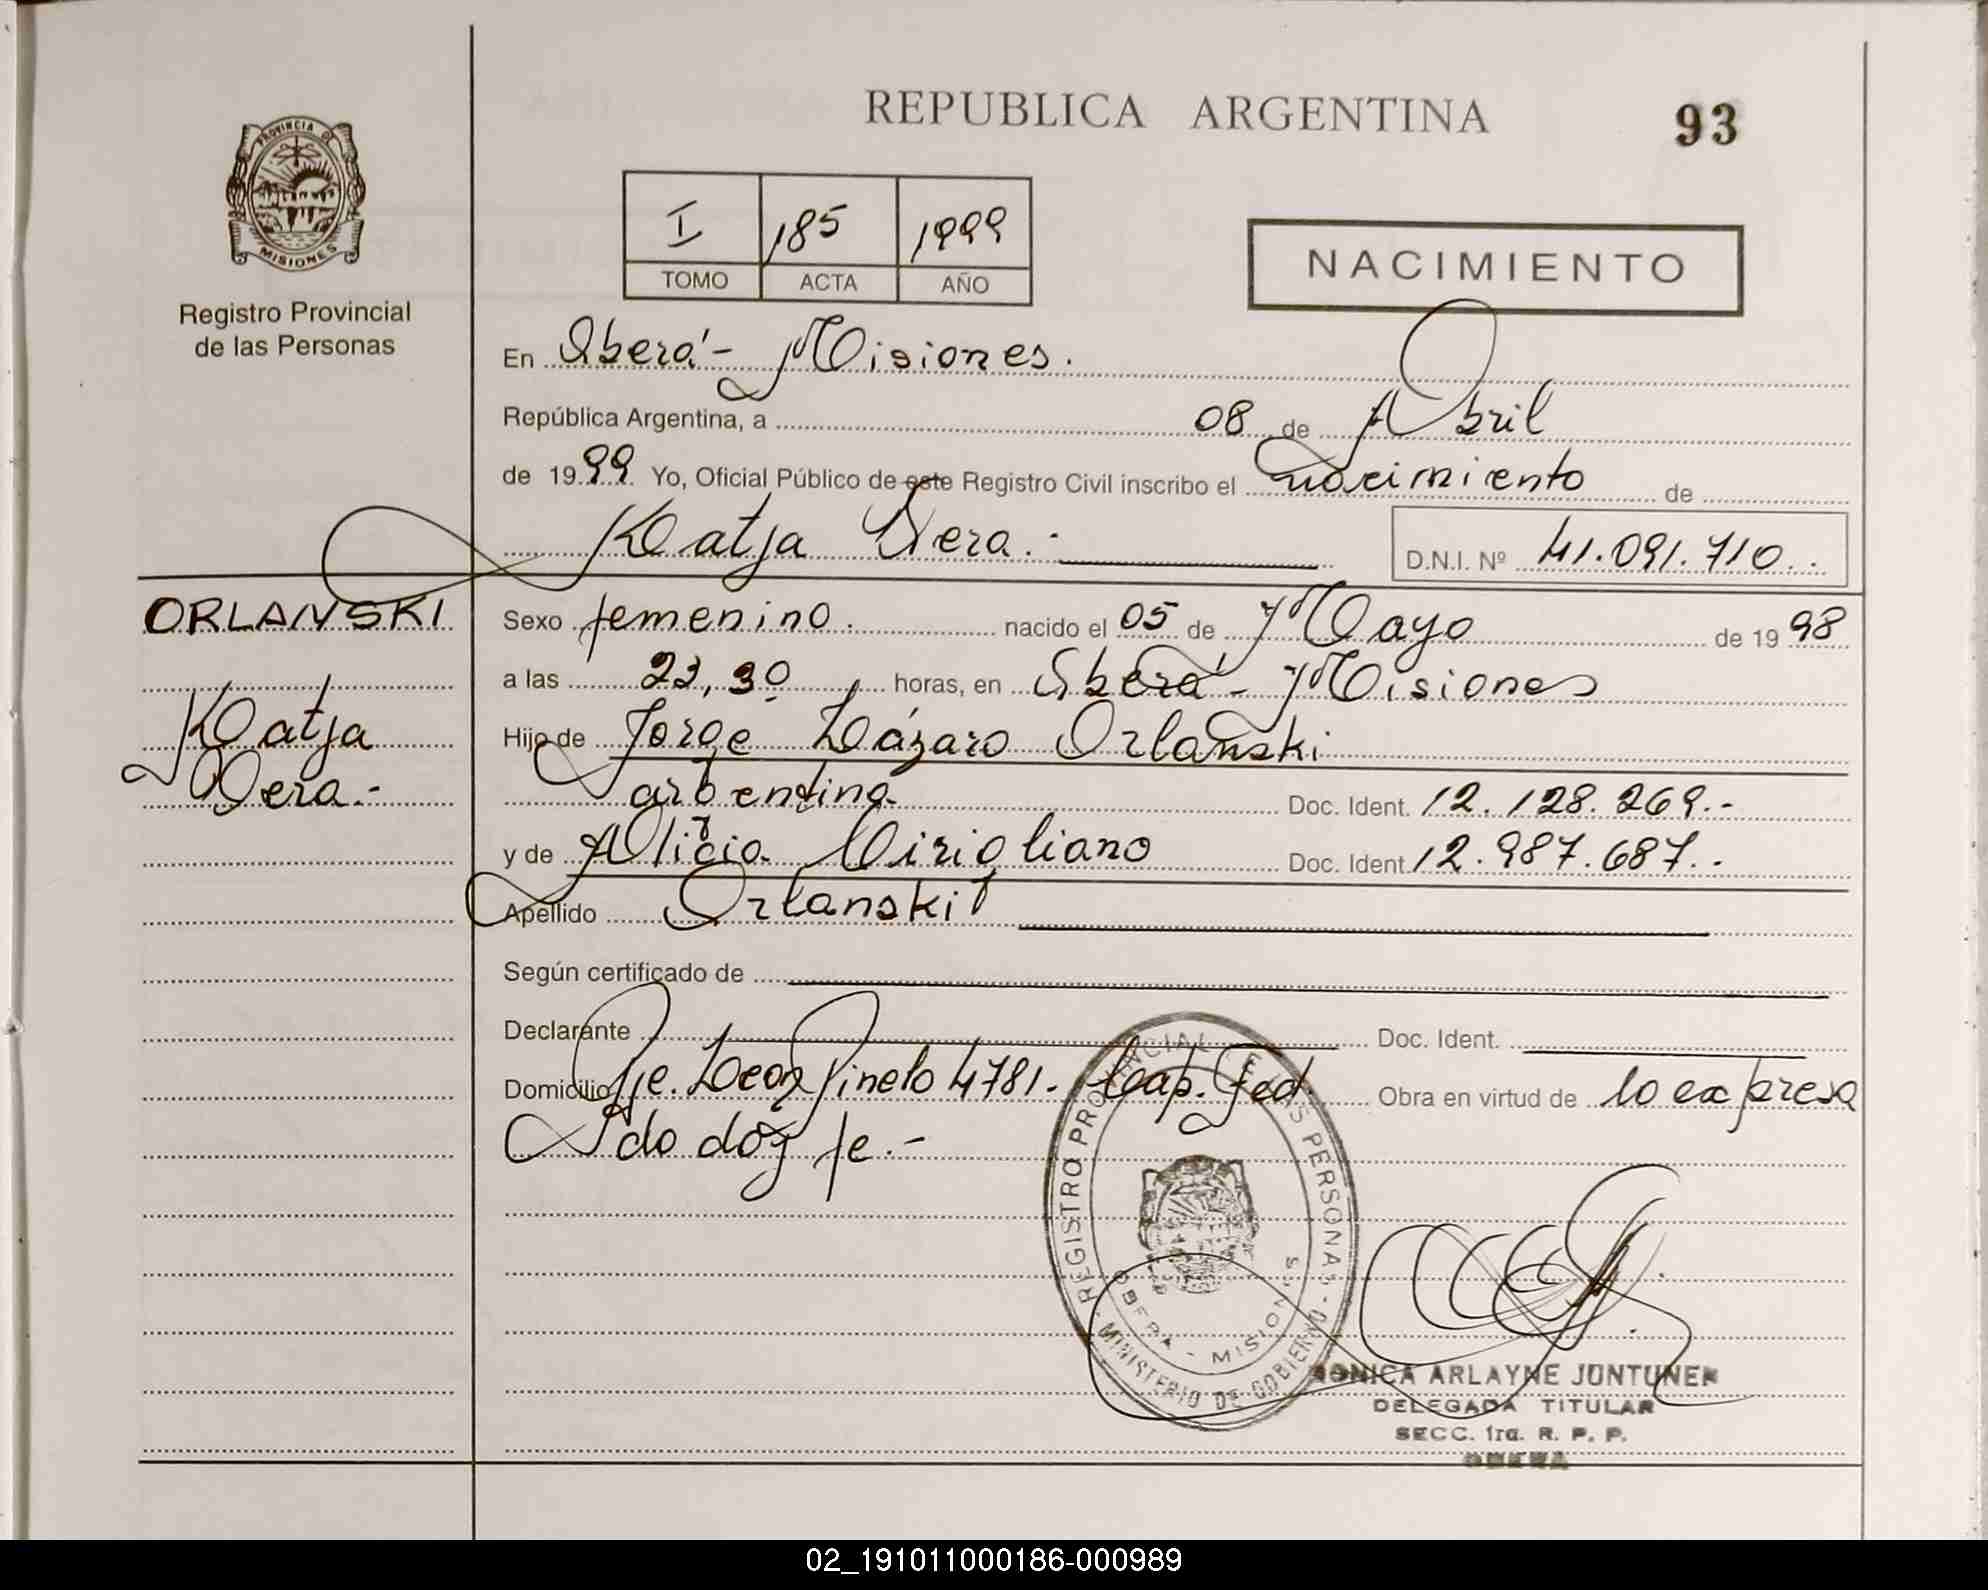 REPUBLICA ARGENTINA
93
PROVINCIA DE
MISIONES
Registro Provincial
de las Personas
I 185 1999
TOMO ACTA AÑO
NACIMIENTO
En Oberá - Misiones.
República Argentina, a 08 de Abril
de 1999 Yo, Oficial Público de este Registro Civil inscribo el nacimiento de
Katja Vera.-
D.N.I. Nº 41.091.710..
ORLANSKI
Katja
Vera.-
Sexo femenino. nacido el 05 de Mayo de 1998
a las 23,30 horas, en Oberá - Misiones
Hijo de Jorge Lázaro Orlanski
argentina Doc. Ident. 12.128.269.-
y de Alicia Cirigliano Doc. Ident. 12.987.687..
Apellido Orlanski
Según certificado de
Declarante Doc. Ident.
Domicilio Pje. Leon Pinelo 4781. Cap. Fed. Obra en virtud de lo expresa
do doy fe.-
REGISTRO PROVINCIAL DE LAS PERSONAS
OBERA - MISIONES
MINISTERIO DE GOBIERNO
MONICA ARLAYNE JUNTUNEN
DELEGADA TITULAR
SECC. 1ra. R. P. P.
OBERA
02_191011000186-000989